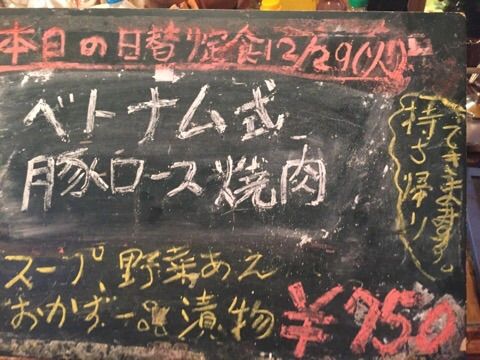 本日の日替り定食12/29(火)
ベトナム式
豚ロース焼肉
持ち帰り
できます。
スープ、野菜あえ
おかず一品 漬物 ¥750